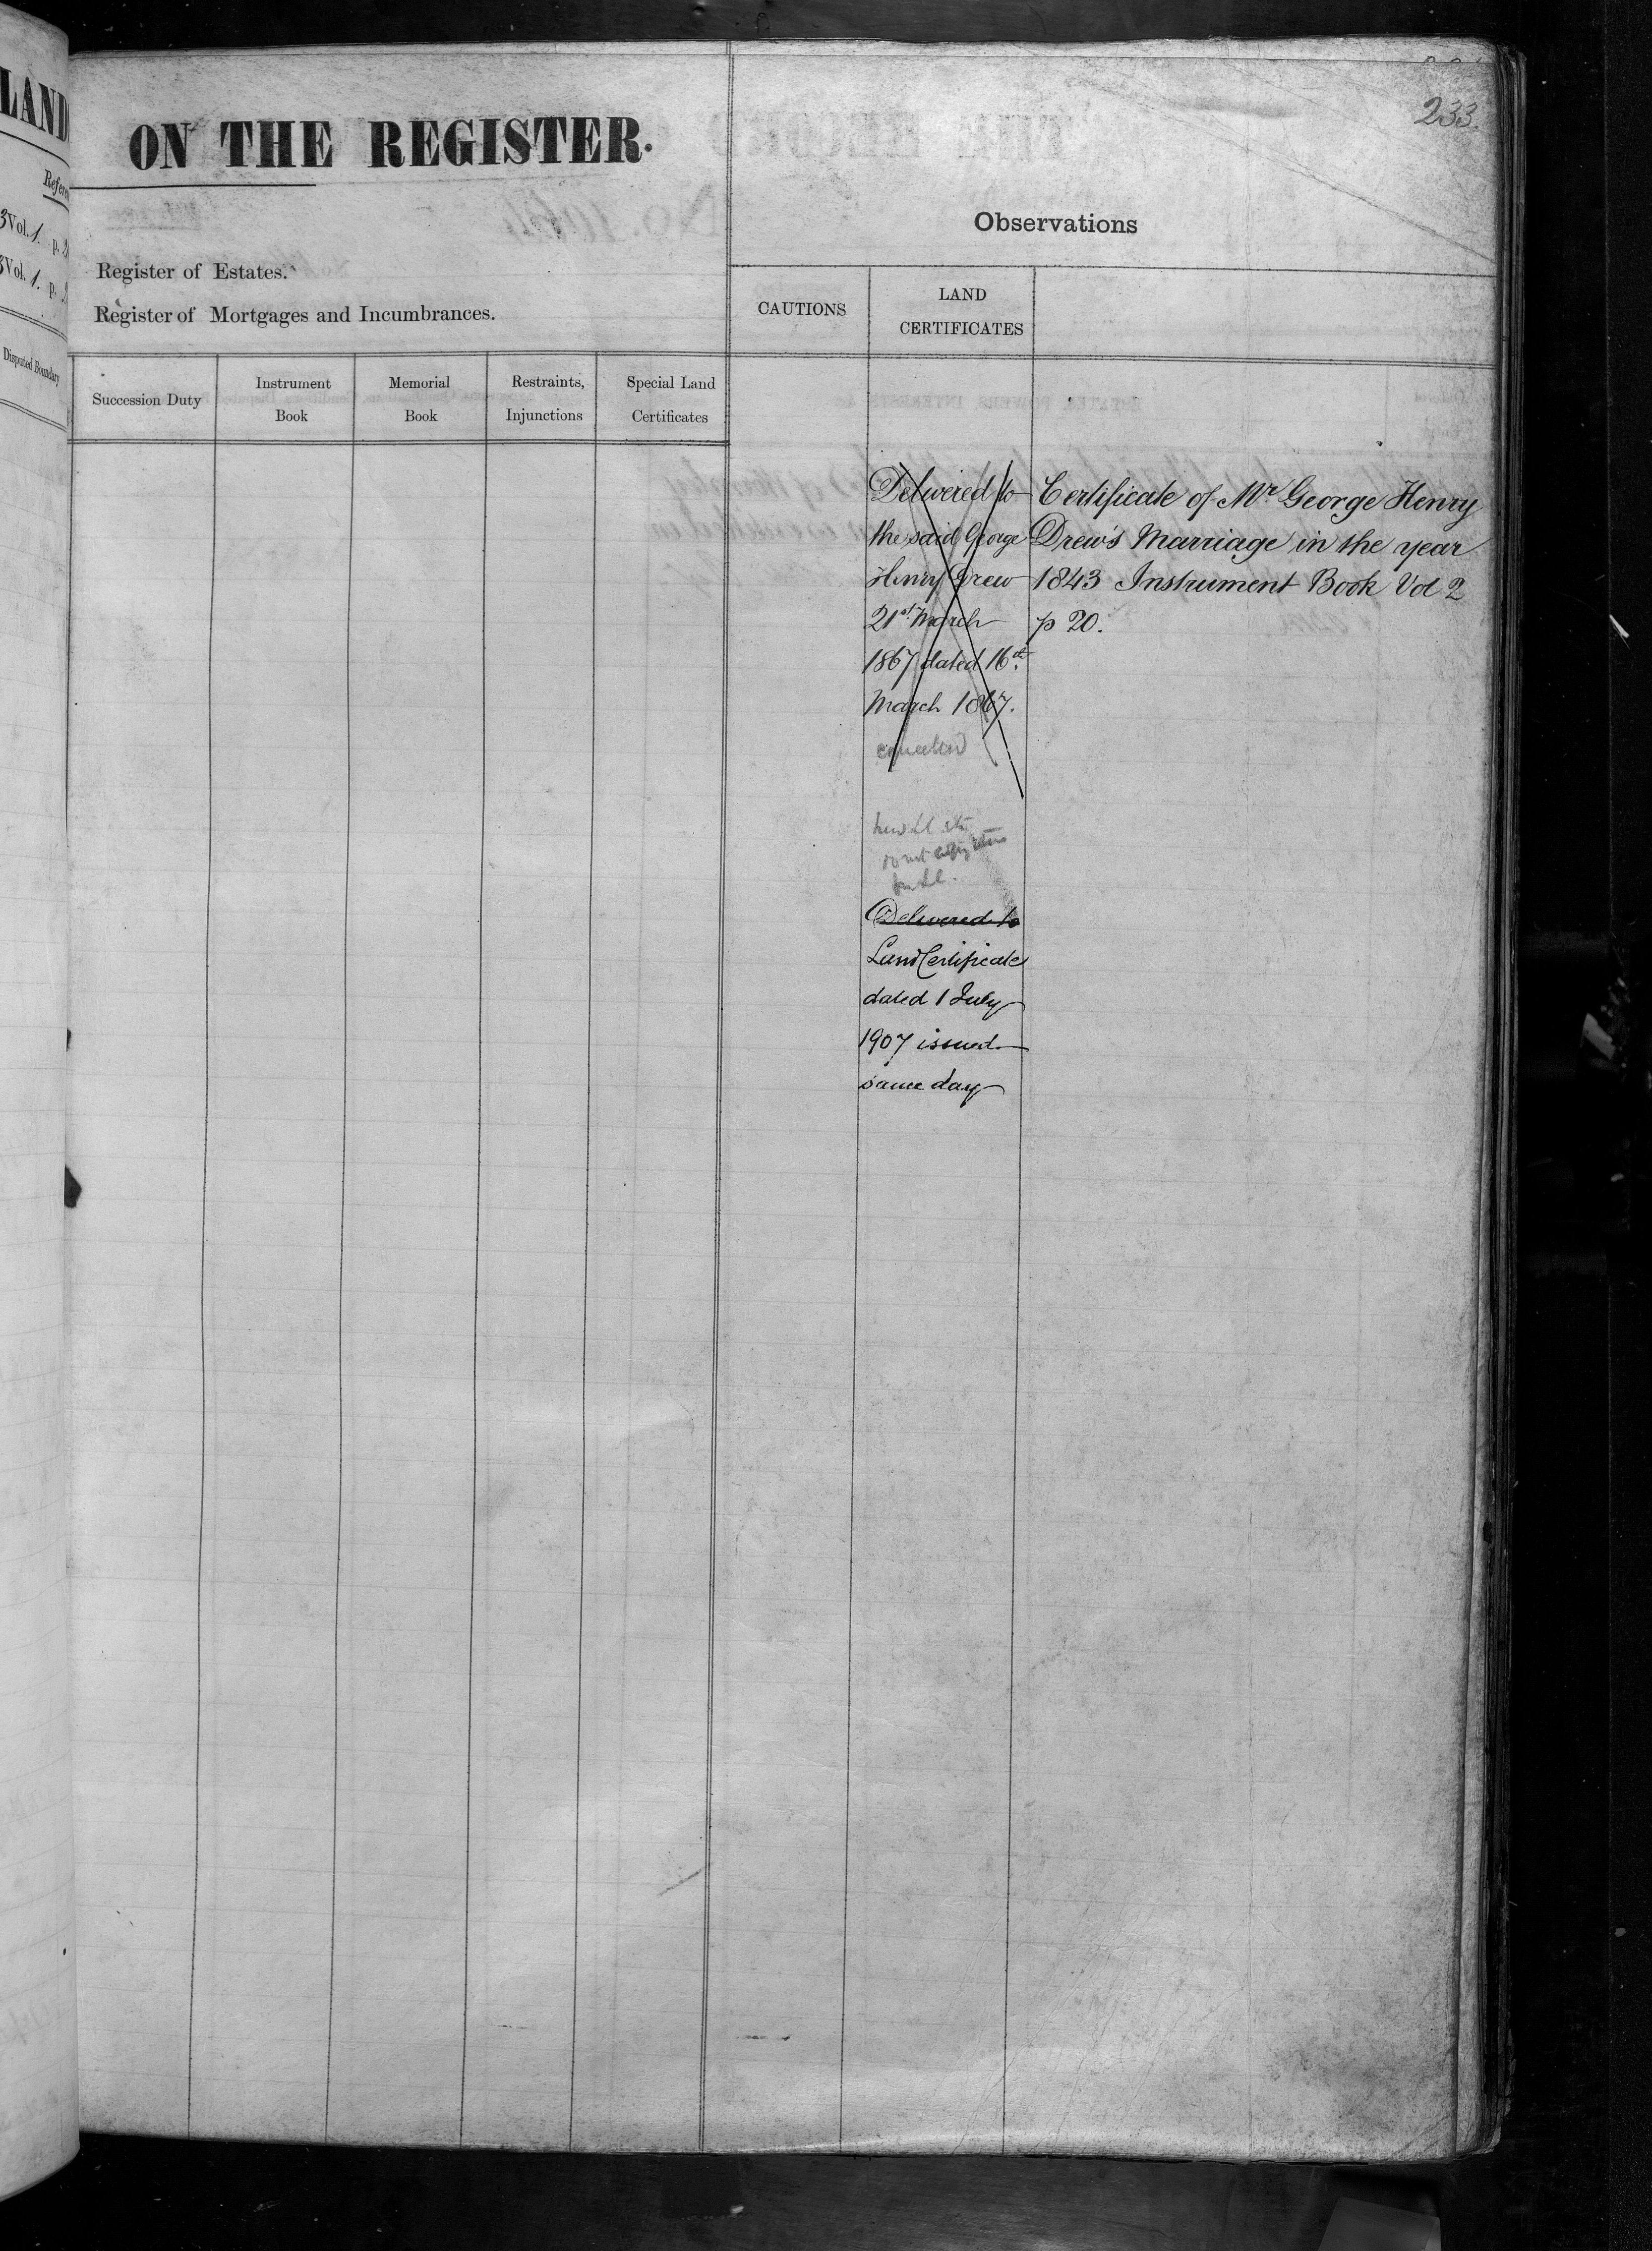 LAND
3 Vol. 1. p.
3 Vol. 1. p.
Disputed Boundary
233
ON THE REGISTER.
Observations
Register of Estates.
Register of Mortgages and Incumbrances.
CAUTIONS
LAND
CERTIFICATES
Succession Duty
Instrument
Book
Memorial
Book
Restraints,
Injunctions
Special Land
Certificates
Delivered to
the said George
Henry Drew
21st March
1867 dated 16th
March 1867.
cancelled
Delivered to
Land Certificate
dated 1 July
1907 issued
same day
Certificate of Mr George Henry
Drew's Marriage in the year
1843 Instrument Book Vol 2
p 20.